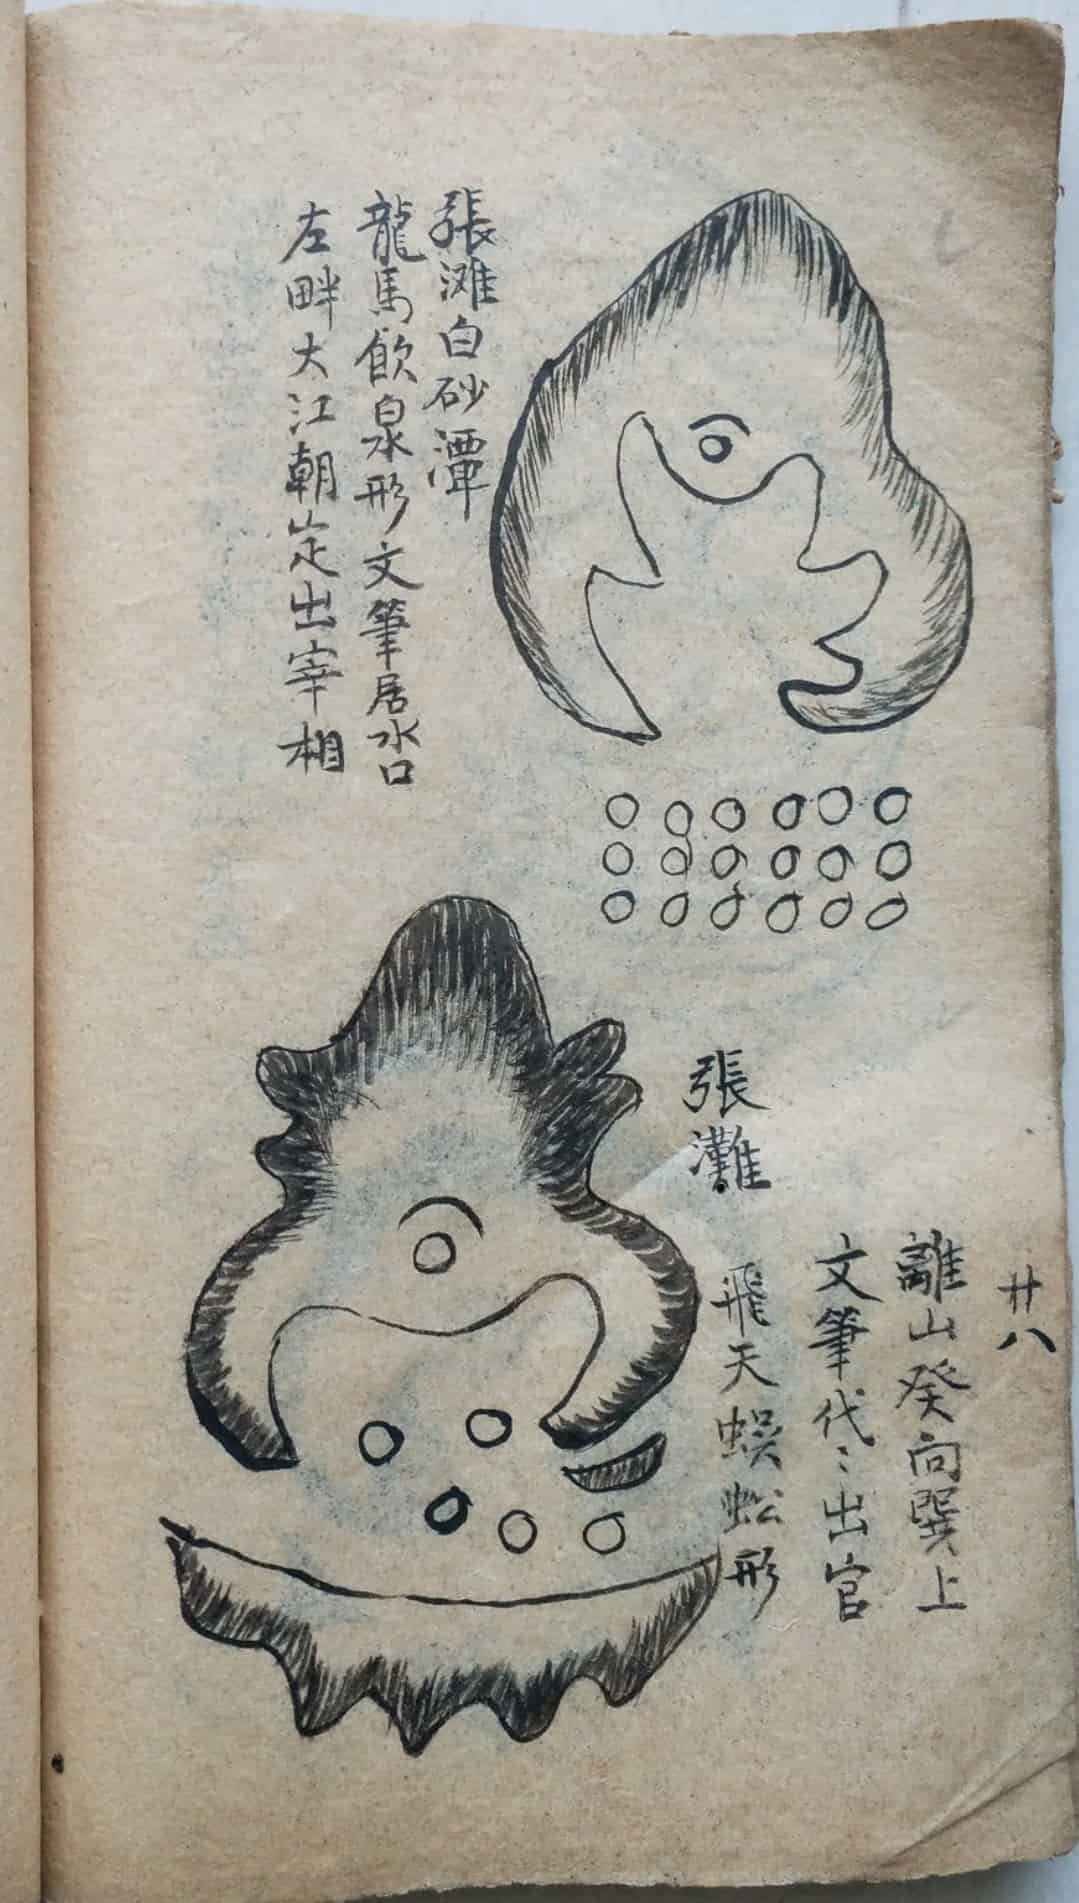 張滩白砂潭
龍馬飲泉形文筆居水口
左畔大江朝定出宰相
廿八
離山癸向巽上
文筆代〻出官
張灘
飛天蜈蚣形